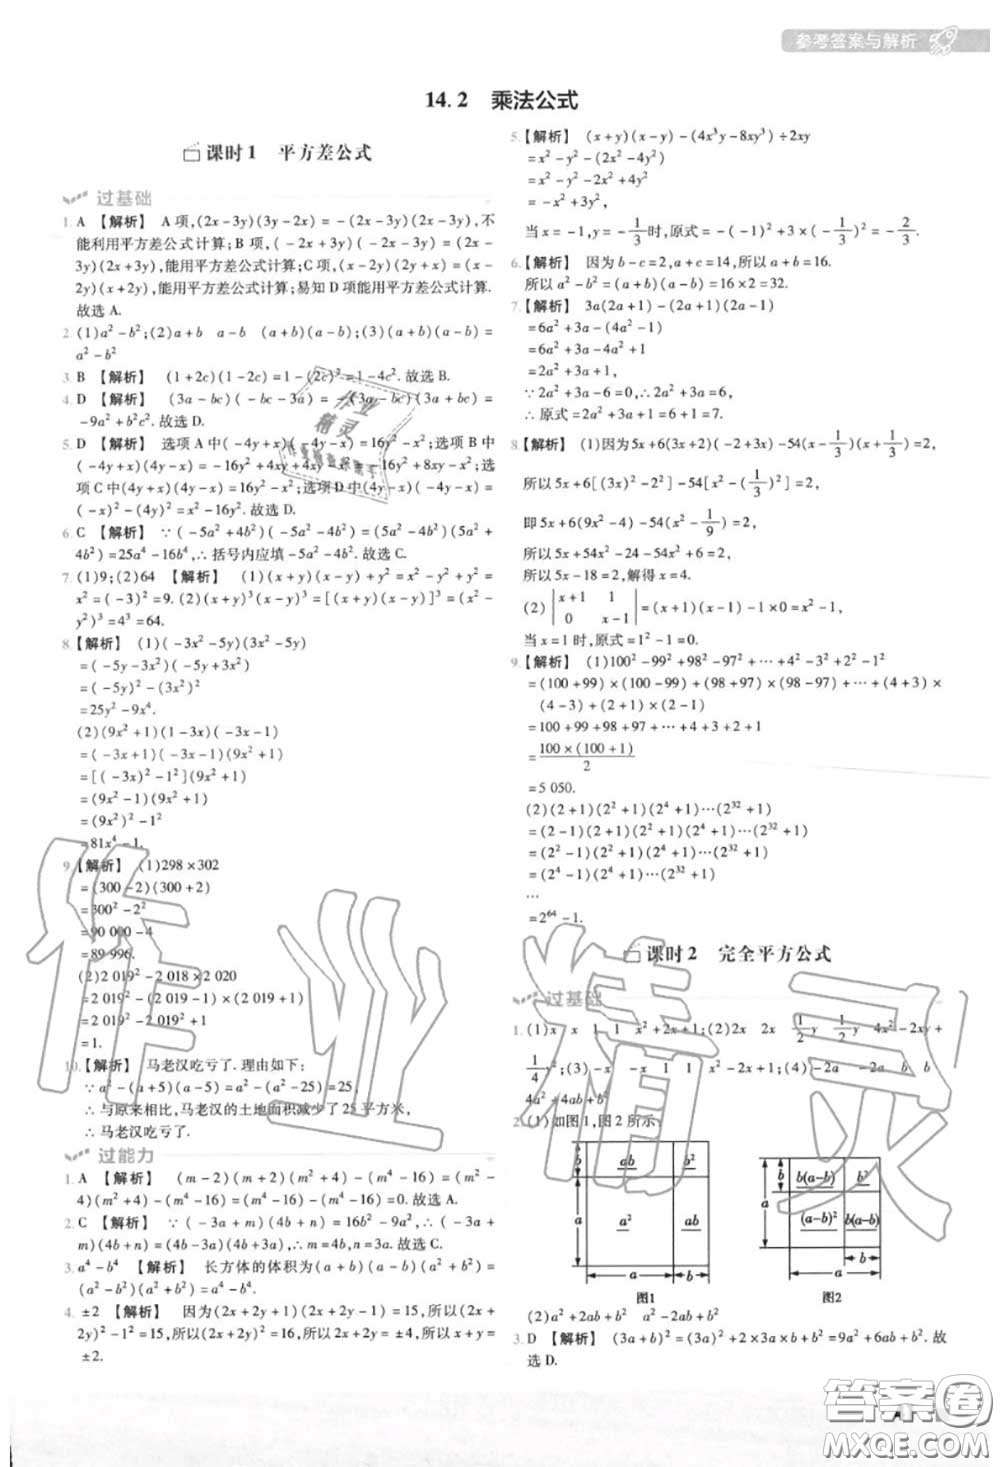 参考答案与解析
14.2 乘法公式
课时1 平方差公式
过基础
1. A 【解析】 A项,(2x-3y)(3y-2x)=-(2x-3y)(2x-3y),不
能利用平方差公式计算;B项,(-2x+3y)(-2x-3y)=(2x-
3y)(2x+3y),能用平方差公式计算;C项,(x-2y)(2y+x)=(x-
2y)(x+2y),能用平方差公式计算;易知D项能用平方差公式计算.
故选A.
2. (1)a²-b²;(2)a+b a-b (a+b)(a-b);(3)(a+b)(a-b)=
a²-b²
3. B 【解析】 (1+2c)(1-2c)=1-(2c)²=1-4c².故选B.
4. D 【解析】 (3a-bc)(-bc-3a)=-(3a-bc)(3a+bc)=
-9a²+b²c².故选D.
5. D 【解析】 选项A中(-4y+x)(-4y-x)=16y²-x²;选项B中
(-4y+x)(4y-x)=-16y²+4xy+4xy-x²=-16y²+8xy-x²;选
项C中(4y+x)(4y+x)=16y²+8xy+x²;选项D中(4y-x)(-4y-x)=
(-x)²-(4y)²=x²-16y².故选D.
6. C 【解析】 ∵(-5a²+4b²)(-5a²-4b²)=(5a²-4b²)(5a²+
4b²)=25a⁴-16b⁴,∴括号内应填-5a²-4b².故选C.
7. (1)9;(2)64 【解析】 (1)(x+y)(x-y)+y²=x²-y²+y²=
x²=(-3)²=9. (2)(x+y)³(x-y)³=[(x+y)(x-y)]³=(x²-
y²)³=4³=64.
8. 【解析】 (1)(-3x²-5y)(3x²-5y)
=(-5y-3x²)(-5y+3x²)
=(-5y)²-(3x²)²
=25y²-9x⁴.
(2)(9x²+1)(1-3x)(-3x-1)
=(-3x+1)(-3x-1)(9x²+1)
=[(-3x)²-1²](9x²+1)
=(9x²-1)(9x²+1)
=(9x²)²-1²
=81x⁴-1.
9. 【解析】 (1)298×302
=(300-2)(300+2)
=300²-2²
=90 000-4
=89 996.
(2)2 019²-2 018×2 020
=2 019²-(2 019-1)×(2 019+1)
=2 019²-2 019²+1
=1.
10. 【解析】 马老汉吃亏了.理由如下:
∵a²-(a+5)(a-5)=a²-(a²-25)=25,
∴与原来相比,马老汉的土地面积减少了25平方米,
∴马老汉吃亏了.
过能力
1. A 【解析】 (m-2)(m+2)(m²+4)-(m⁴-16)=(m²-
4)(m²+4)-(m⁴-16)=(m⁴-16)-(m⁴-16)=0.故选A.
2. C 【解析】 ∵(-3a+m)(4b+n)=16b²-9a²,∴(-3a+
m)(4b+n)=(4b+3a)(4b-3a),∴m=4b,n=3a.故选C.
3. a⁴-b⁴ 【解析】 长方体的体积为(a+b)(a-b)(a²+b²)=
(a²-b²)(a²+b²)=a⁴-b⁴.
4. ±2 【解析】 因为(2x+2y+1)(2x+2y-1)=15,所以(2x+
2y)²-1²=15,所以(2x+2y)²=16,所以2x+2y=±4,所以x+y=
±2.
5. 【解析】 (x+y)(x-y)-(4x³y-8xy³)÷2xy
=x²-y²-(2x²-4y²)
=x²-y²-2x²+4y²
=-x²+3y²,
当x=-1,y=-1/3时,原式=-(-1)²+3×(-1/3)²=-2/3.
6. 【解析】 因为b-c=2,a+c=14,所以a+b=16.
所以a²-b²=(a+b)(a-b)=16×2=32.
7. 【解析】 3a(2a+1)-(2a+1)(2a-1)
=6a²+3a-(4a²-1)
=6a²+3a-4a²+1
=2a²+3a+1,
∵2a²+3a-6=0,∴2a²+3a=6,
∴原式=2a²+3a+1=6+1=7.
8. 【解析】 (1)因为5x+6(3x+2)(-2+3x)-54(x-1/3)(x+1/3)=2,
所以5x+6[(3x)²-2²]-54[x²-(1/3)²]=2,
即5x+6(9x²-4)-54(x²-1/9)=2,
所以5x+54x²-24-54x²+6=2,
所以5x-18=2,解得x=4.
(2)|x+1 1|
|0 x-1|=(x+1)(x-1)-1×0=x²-1,
当x=1时,原式=1²-1=0.
9. 【解析】 (1)100²-99²+98²-97²+…+4²-3²+2²-1²
=(100+99)×(100-99)+(98+97)×(98-97)+…+(4+3)×
(4-3)+(2+1)×(2-1)
=100+99+98+97+…+4+3+2+1
=100×(100+1)/2
=5 050.
(2)(2+1)(2²+1)(2⁴+1)…(2³²+1)
=(2-1)(2+1)(2²+1)(2⁴+1)…(2³²+1)
=(2²-1)(2²+1)(2⁴+1)…(2³²+1)
=(2⁴-1)(2⁴+1)…(2³²+1)
…
=2⁶⁴-1.
课时2 完全平方公式
过基础
1. (1)x x 1 1 x²+2x+1;(2)2x 2x 1/2y 1/2y 4x²-2xy+
1/4y²;(3)-x -x 1 1 x²-2x+1;(4)-2a -2a b b
4a²-4ab+b²
2. (1)如图1,图2所示:
b ab b²
a a² ab
a b
图1
b b(a-b) b²
a (a-b)² b(a-b)
b
a
图2
(2)a²+2ab+b² a²-2ab+b²
3. D 【解析】 (3a+b)²=(3a)²+2×3a×b+b²=9a²+6ab+b².故
选D.
作业精灵
作业精灵
答案圈
MXQE.COM